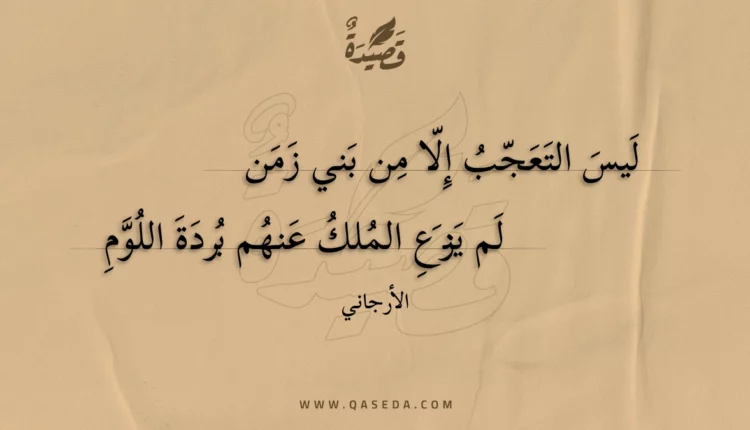 قَصِيْدَةٌ
لَيسَ التَعَجّبُ إِلّا مِن بَني زَمَن
لَم يَزَعِ المُلكُ عَنهُم بُردَةَ اللُوَّمِ
الأرجاني
WWW.QASEDA.COM